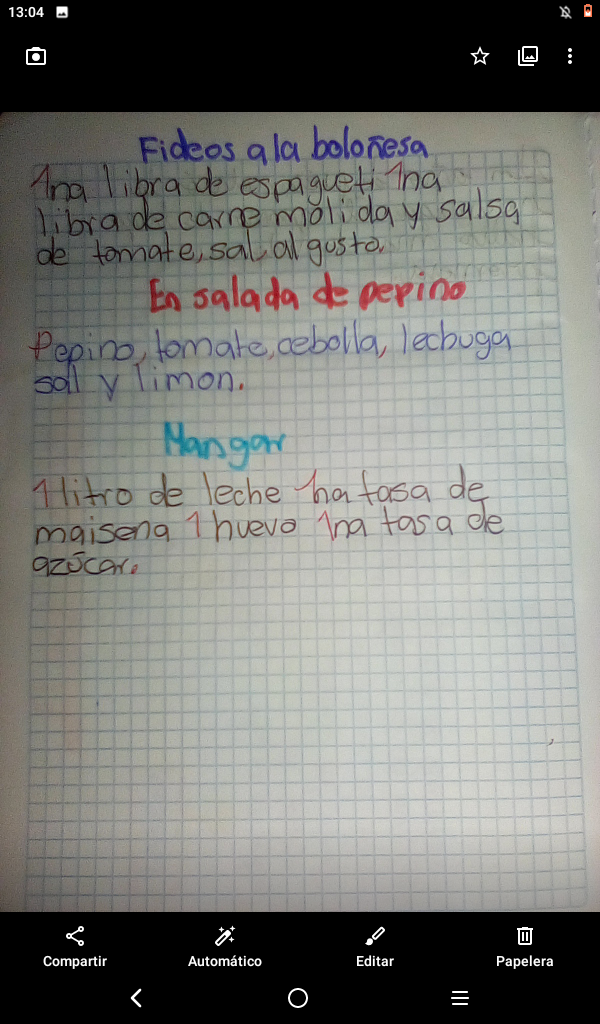 13:04
Fideos a la boloñesa
1na libra de espagueti 1na
libra de carne molida y salsa
de tomate, sal, al gusto.
En salada de pepino
Pepino, tomate, cebolla, lechuga
sall y limon.
Mangar
1 litro de leche 1na tasa de
maisena 1 huevo 1na tasa de
azúcar.
Compartir
Automático
Editar
Papelera